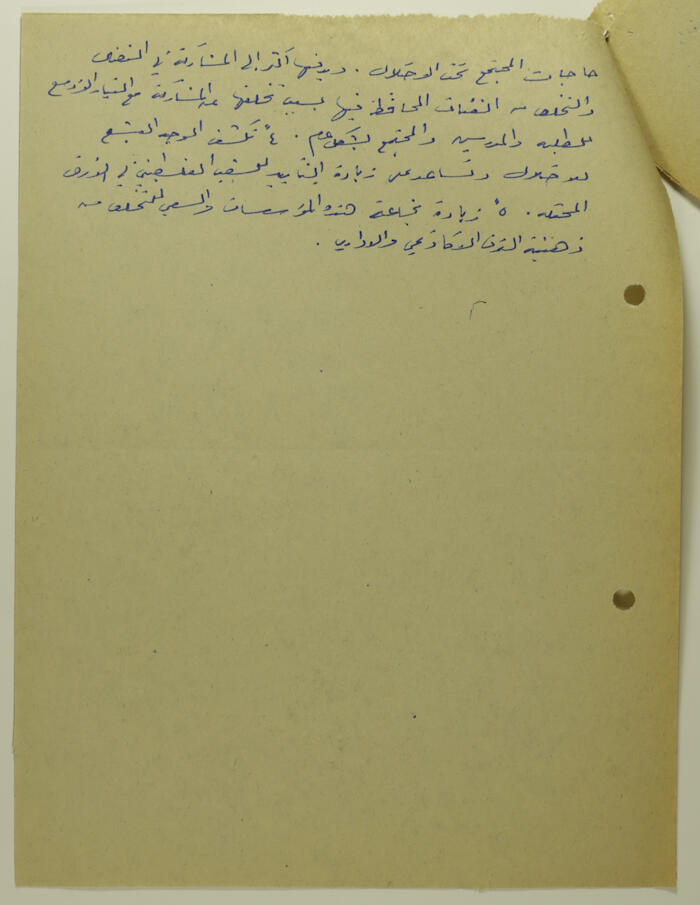 حاجات المجتمع تحت الاحتلال. ويدفعها أكثر الى المشاركة في النضال
والتخلص من الفئات المحافظة فيها بسبب تخلفها عن المشاركة مع التيار الأوسع
للطلبه والمدرسين والمجتمع بشكل عام. ٤ً تكشف الوجه البشع
للاحتلال وتساعد على زيادة التأييد للشعب الفلسطيني في الأرض
المحتله. ٥ً زيادة نجاعة هذه المؤسسات والسعي للتخلص من
ذهنية الترف الأكاديمي والاداري.